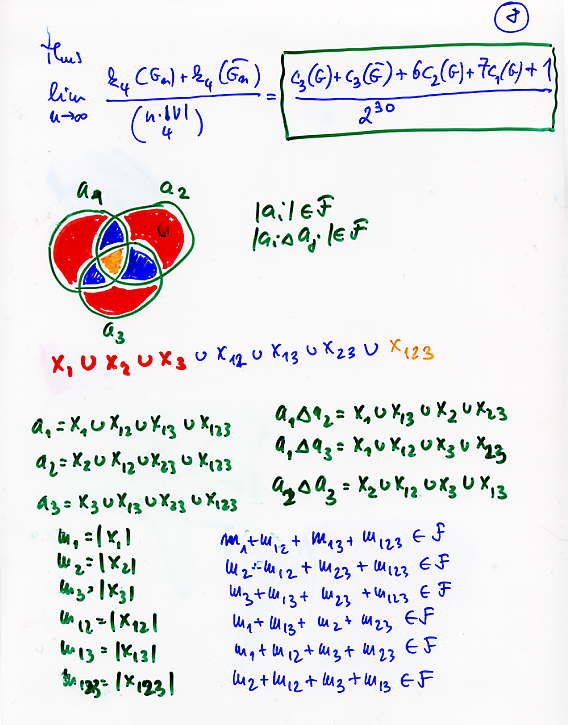 8
Thus
lim n→∞ (k₄(Gₙ) + k₄(Ḡₙ)) / (n·|V| 4) = (c₃(G) + c₃(Ḡ) + 6c₂(G) + 7c₁(G) + 1) / 2³⁰
a₁ a₂
|aᵢ| ∈ F
|aᵢ △ aⱼ| ∈ F
a₃
x₁ ∪ x₂ ∪ x₃ ∪ x₁₂ ∪ x₁₃ ∪ x₂₃ ∪ x₁₂₃
a₁ = x₁ ∪ x₁₂ ∪ x₁₃ ∪ x₁₂₃
a₂ = x₂ ∪ x₁₂ ∪ x₂₃ ∪ x₁₂₃
a₃ = x₃ ∪ x₁₃ ∪ x₂₃ ∪ x₁₂₃
a₁ △ a₂ = x₁ ∪ x₁₃ ∪ x₂ ∪ x₂₃
a₁ △ a₃ = x₁ ∪ x₁₂ ∪ x₃ ∪ x₂₃
a₂ △ a₃ = x₂ ∪ x₁₂ ∪ x₃ ∪ x₁₃
m₁ = |x₁|
m₂ = |x₂|
m₃ = |x₃|
m₁₂ = |x₁₂|
m₁₃ = |x₁₃|
m₁₂₃ = |x₁₂₃|
m₁ + m₁₂ + m₁₃ + m₁₂₃ ∈ F
m₂ + m₁₂ + m₂₃ + m₁₂₃ ∈ F
m₃ + m₁₃ + m₂₃ + m₁₂₃ ∈ F
m₁ + m₁₃ + m₂ + m₂₃ ∈ F
m₁ + m₁₂ + m₃ + m₂₃ ∈ F
m₂ + m₁₂ + m₃ + m₁₃ ∈ F